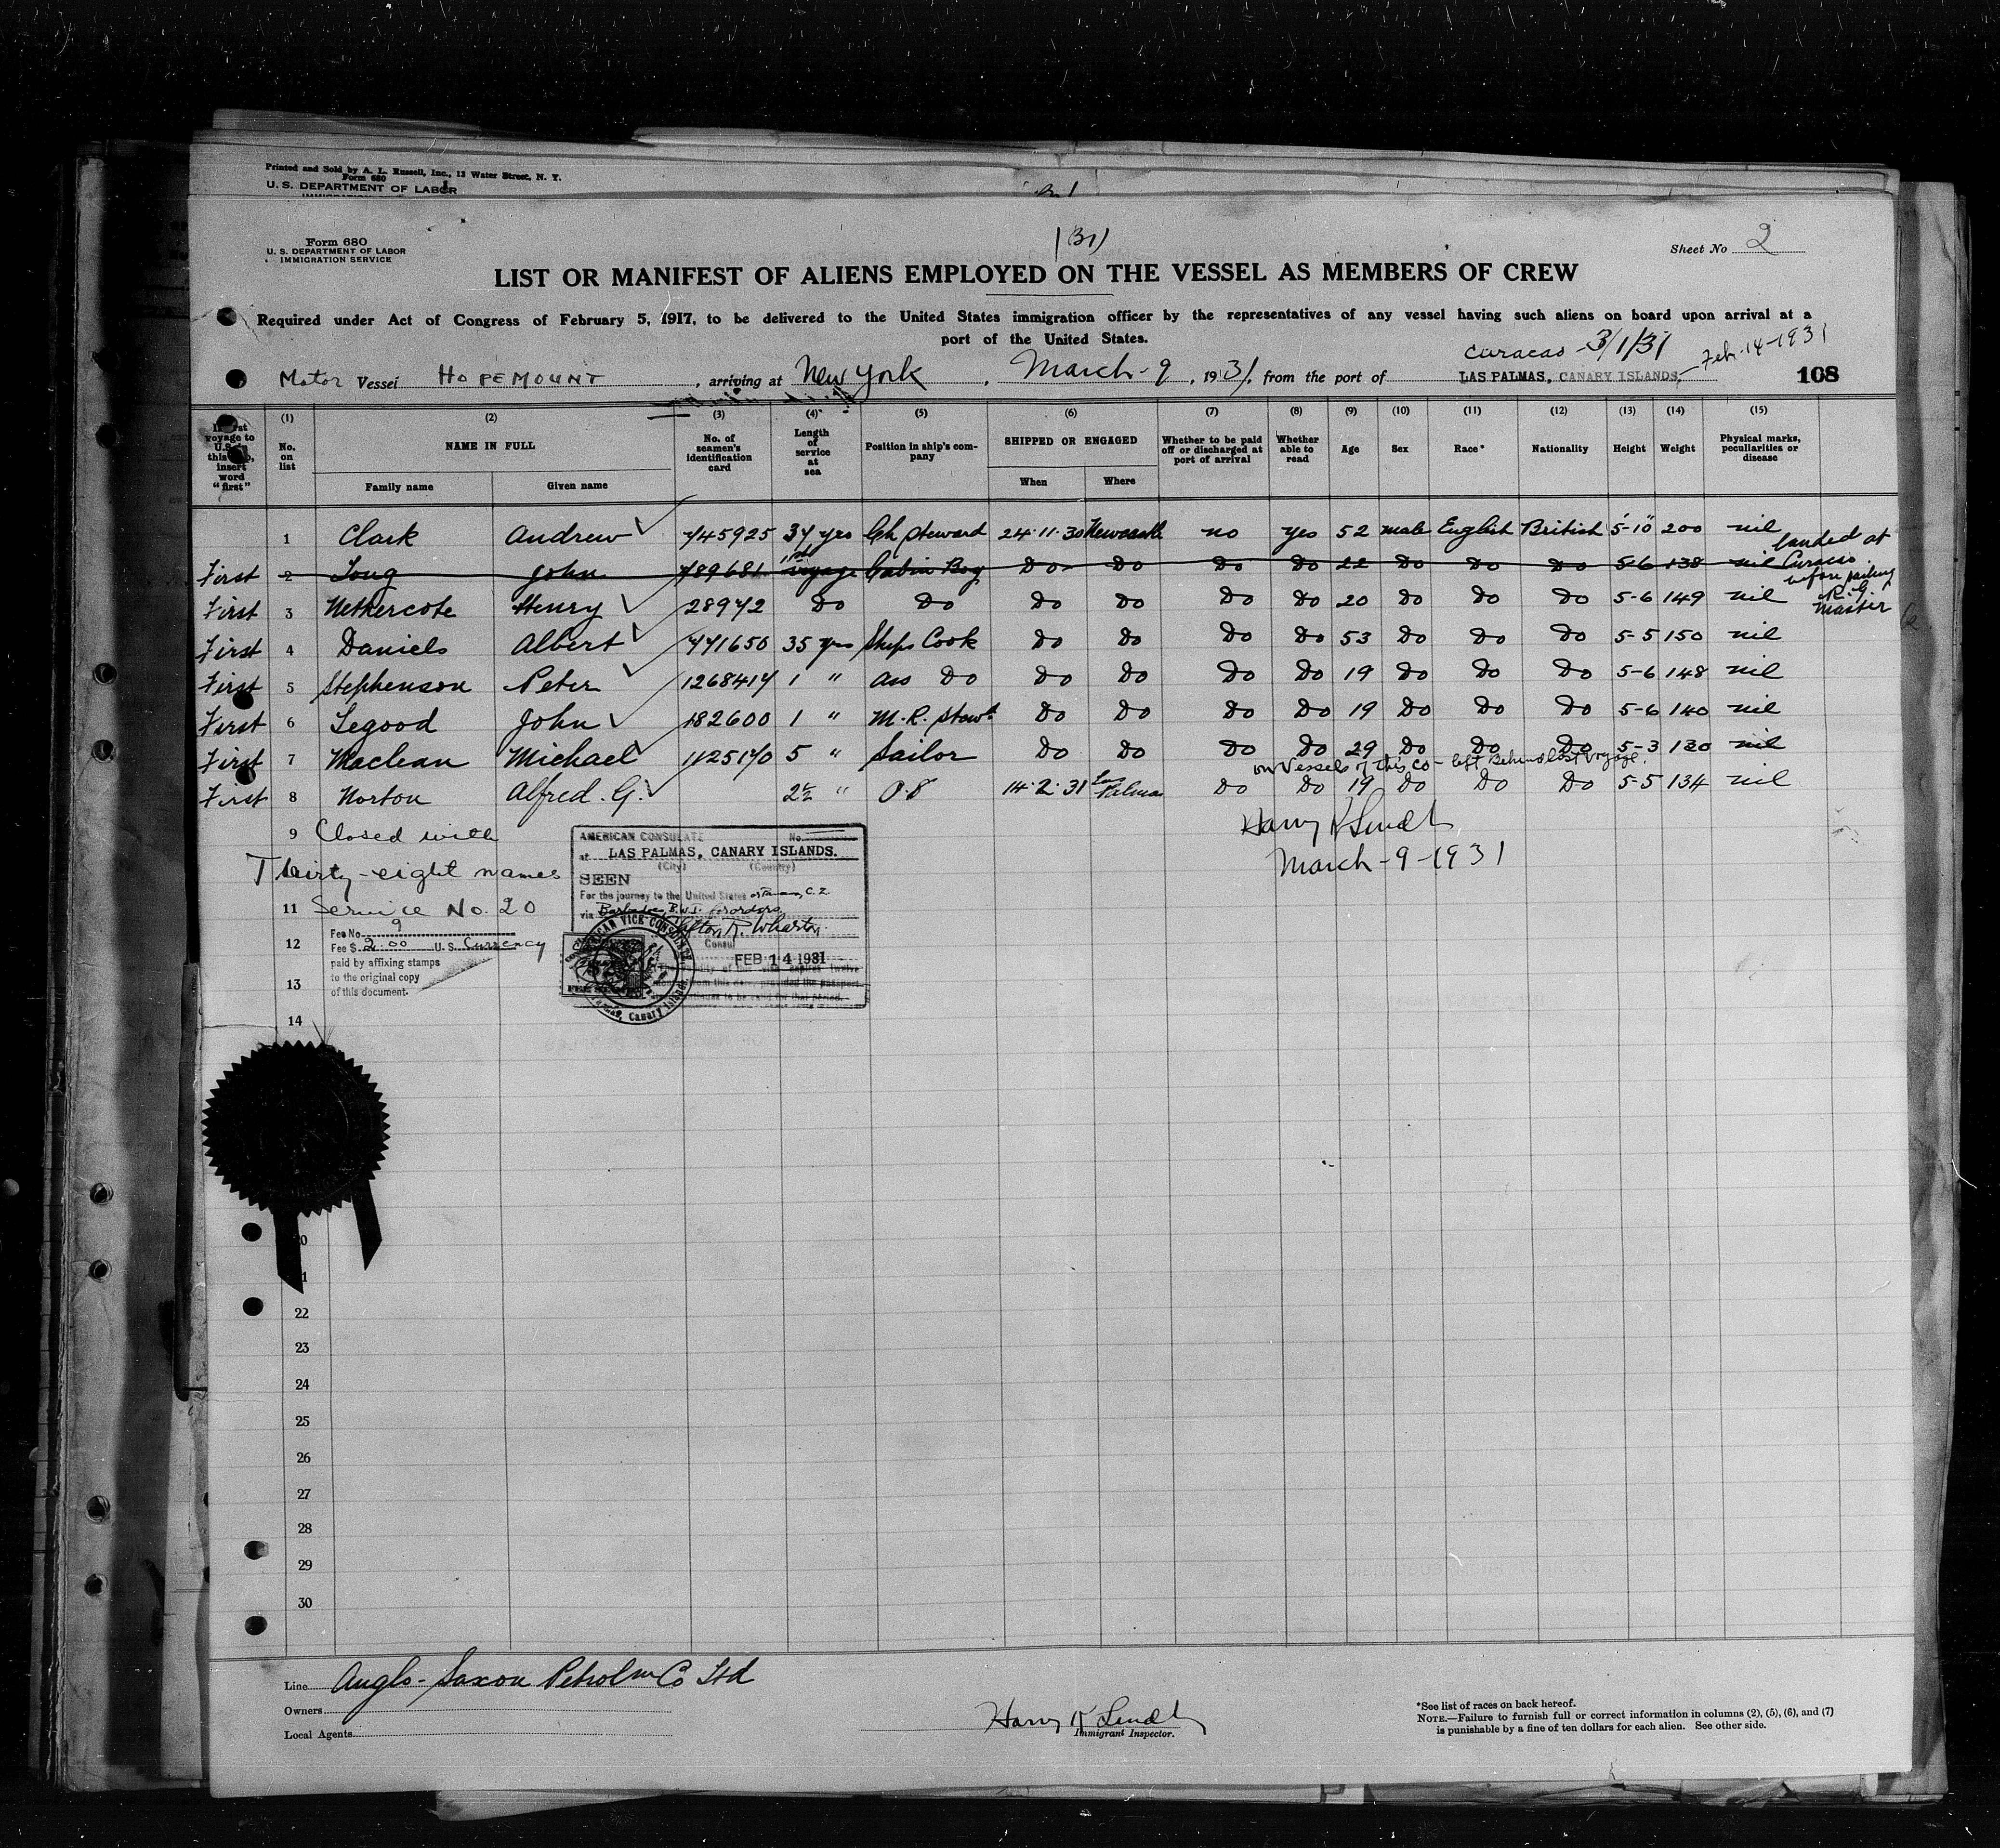 Printed and Sold by A. L. Russell, Inc., 13 Water Street, N. Y.
Form 680
U. S. DEPARTMENT OF LABOR
Form 680
U. S. DEPARTMENT OF LABOR
IMMIGRATION SERVICE
Sheet No 2
LIST OR MANIFEST OF ALIENS EMPLOYED ON THE VESSEL AS MEMBERS OF CREW
Required under Act of Congress of February 5, 1917, to be delivered to the United States immigration officer by the representatives of any vessel having such aliens on board upon arrival at a
port of the United States.
Curacao - 3/1/31
Motor Vessel HOPEMOUNT, arriving at New York, March - 9, 1931, from the port of LAS PALMAS, CANARY ISLANDS, - Feb. 14-1931 108
(1) (2) (3) (4) (5) (6) (7) (8) (9) (10) (11) (12) (13) (14) (15)
voyage to U.S. insert word "first" No. on list NAME IN FULL Family name Given name No. of seamen's identification card Length of service at sea Position in ship's company SHIPPED OR ENGAGED When Where Whether to be paid off or discharged at port of arrival Whether able to read Age Sex Race* Nationality Height Weight Physical marks, peculiarities or disease
1 Clark Andrew 745925 34 yrs Ch Steward 24.11.30 Newcastle no yes 52 male English British 5-10 200 nil
First 2 Tong John 789681 1st voyage Cabin Boy Do Do Do Do 22 Do Do Do 5-6 138 nil landed at Curacao before sailing R.G. Master
First 3 Nethercote Henry 28972 Do Do Do Do Do Do 20 Do Do Do 5-6 149 nil
First 4 Daniels Albert 771650 35 yrs Ships Cook Do Do Do Do 53 Do Do Do 5-5 150 nil
First 5 Stephenson Peter 1268417 1 " Ass Do Do Do Do Do 19 Do Do Do 5-6 148 nil
First 6 Legood John 182600 1 " M.R. Stewd Do Do Do Do 19 Do Do Do 5-6 140 nil
First 7 Maclean Michael 1125170 5 " Sailor Do Do Do Do 29 Do Do Do 5-3 130 nil
on Vessels of this Co - left behind last voyage.
First 8 Norton Alfred. G. 2 " O.S 14.2.31 Las Palmas Do Do 19 Do Do Do 5-5 134 nil
9 Closed with
Thirty-eight names
11 Service No. 20
Fee No. 9
12 Fee $ 2.00 U. S. Currency
paid by affixing stamps
13 to the original copy
of this document.
AMERICAN CONSULATE No.
at LAS PALMAS, CANARY ISLANDS.
(City) (Country)
SEEN
For the journey to the United States or Panama, C. Z.
via Barbados B.W.I. for orders
Clifton R. Wharton
Consul
FEB 14 1931
Harry K Lindt
March - 9 - 1931
14
22
23
24
25
26
27
28
29
30
Line Anglo-Saxon Petrolm Co Ltd
Owners
Local Agents
Harry K Lindt
Immigrant Inspector.
*See list of races on back hereof.
NOTE.—Failure to furnish full or correct information in columns (2), (5), (6), and (7)
is punishable by a fine of ten dollars for each alien. See other side.